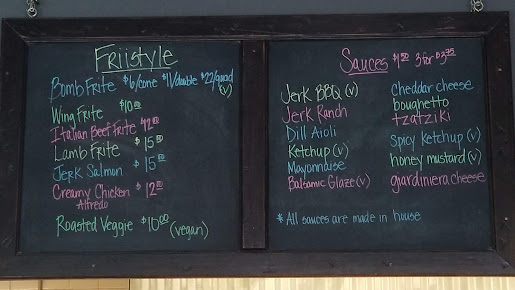 Friistyle
Bomb Frite $6/cone $11/double $22/quad
(v)
Wing Frite $10.00
Italian Beef Frite $12.00
Lamb Frite $15.00
Jerk Salmon $15.00
Creamy Chicken $12.00
Alfredo
Roasted Veggie $10.00 (vegan)
Sauces $1.50 3 for $3.75
Jerk BBQ (v)
Jerk Ranch
Dill Aioli
Ketchup (v)
Mayonnaise
Balsamic Glaze (v)
cheddar cheese
boughetto
tzatziki
Spicy Ketchup (v)
honey mustard (v)
giardiniera cheese
* All sauces are made in house